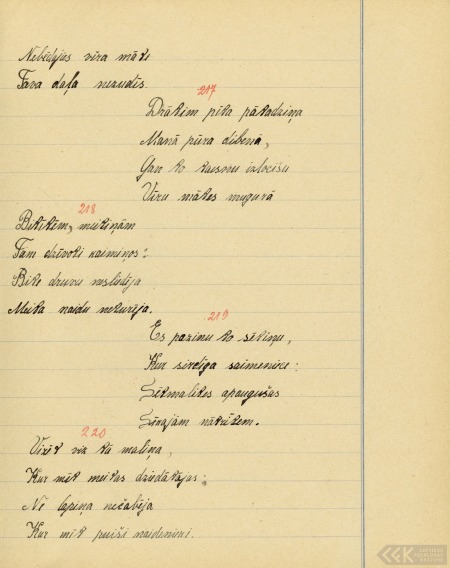 Nebēdājies vīra māte
Tava daļa nezudīs.
217
Drātim pīta pātadziņa
Manā pūra dibenā,
Gan to taisnu izlocīšu
Vīru mātes mugurā
218
Bitītēm, meitiņām
Tam dzīvoti kaimiņos:
Bite druvu neslīdēja
Meita naidu nekurēja.
219
Es pazinu to sētiņu,
Kur sirdīga saimeniece:
Sētmalītes apaugušas
Sīkajām nātrītēm.
220
Vizēt viz tā maliņa,
Kur mīt meitas dziedātājas;
Ne lapiņa nečabēja
Kur mīt puiši naidenieki.